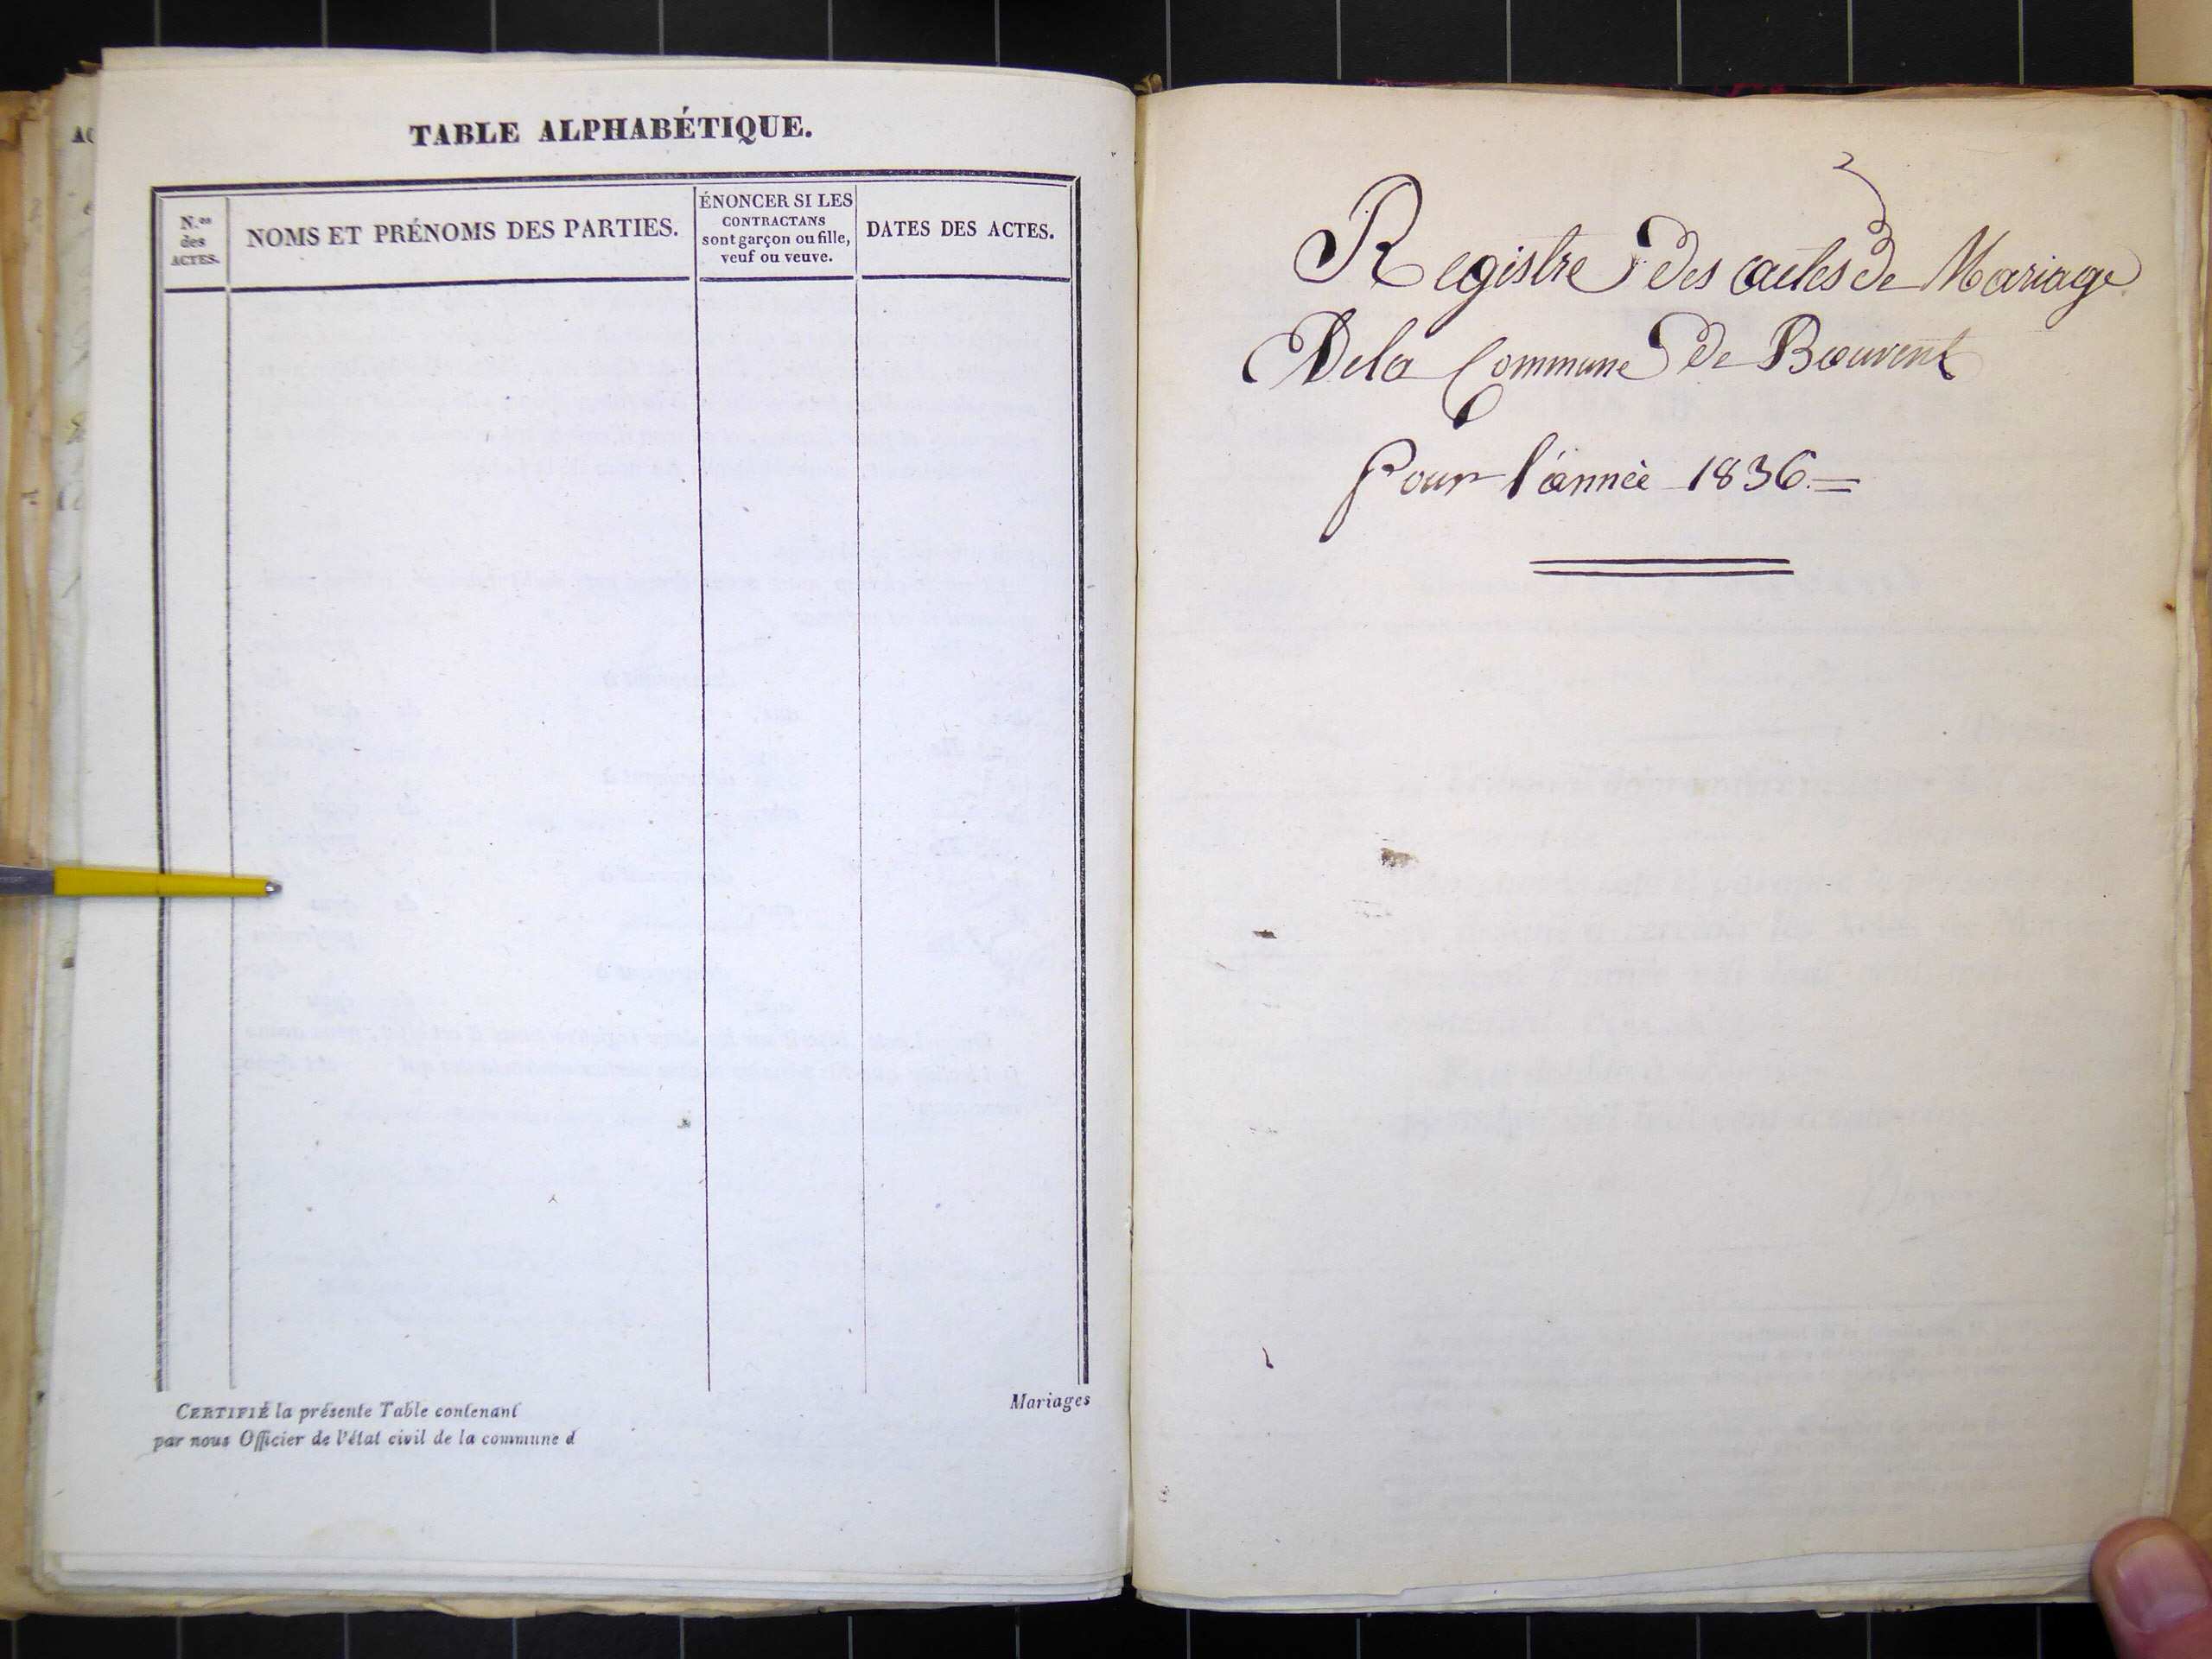 TABLE ALPHABÉTIQUE.
N.os
des
ACTES.
NOMS ET PRÉNOMS DES PARTIES.
ÉNONCER SI LES
CONTRACTANS
sont garçon ou fille,
veuf ou veuve.
DATES DES ACTES.
CERTIFIÉ la présente Table contenant
par nous Officier de l'état civil de la commune d
Mariages
Registre des actes de Mariage
De la Commune de Bouvent
Pour l'année 1836